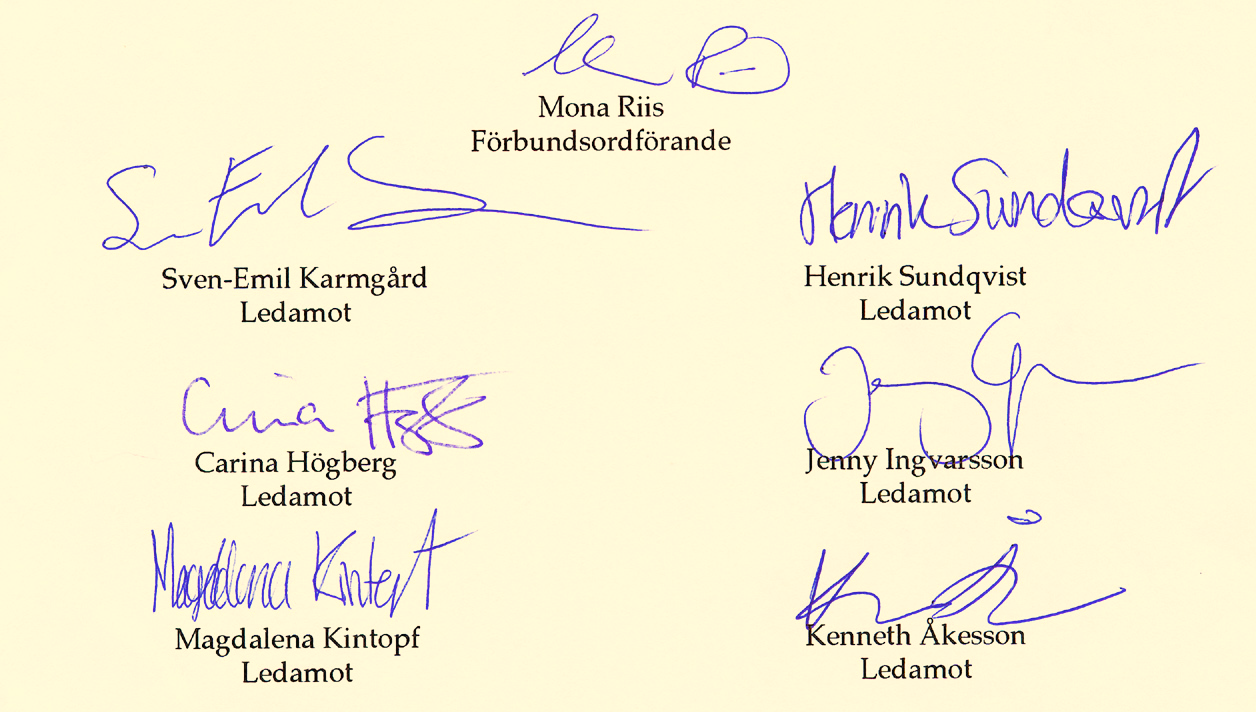 Mona Riis
Förbundsordförande
Sven-Emil Karmgård
Ledamot
Henrik Sundqvist
Henrik Sundqvist
Ledamot
Carina Högberg
Ledamot
Jenny Ingvarsson
Ledamot
Magdalena Kintopf
Magdalena Kintopf
Ledamot
Kenneth Åkesson
Ledamot